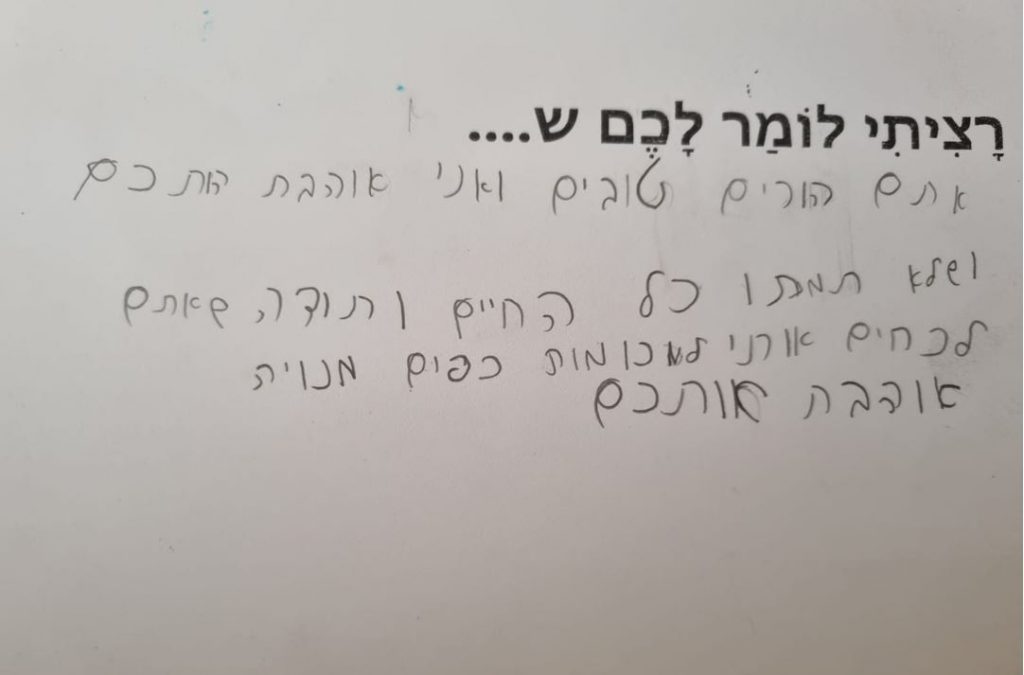 רָצִיתִי לוֹמַר לָכֶם ש....
אתם הורים טובים ואני אוהבת התכם
ושלא תמתו כל החיים ותודה, שאתם
לכחים אותי למכומות כפים מנויה
אוהבת אותכם